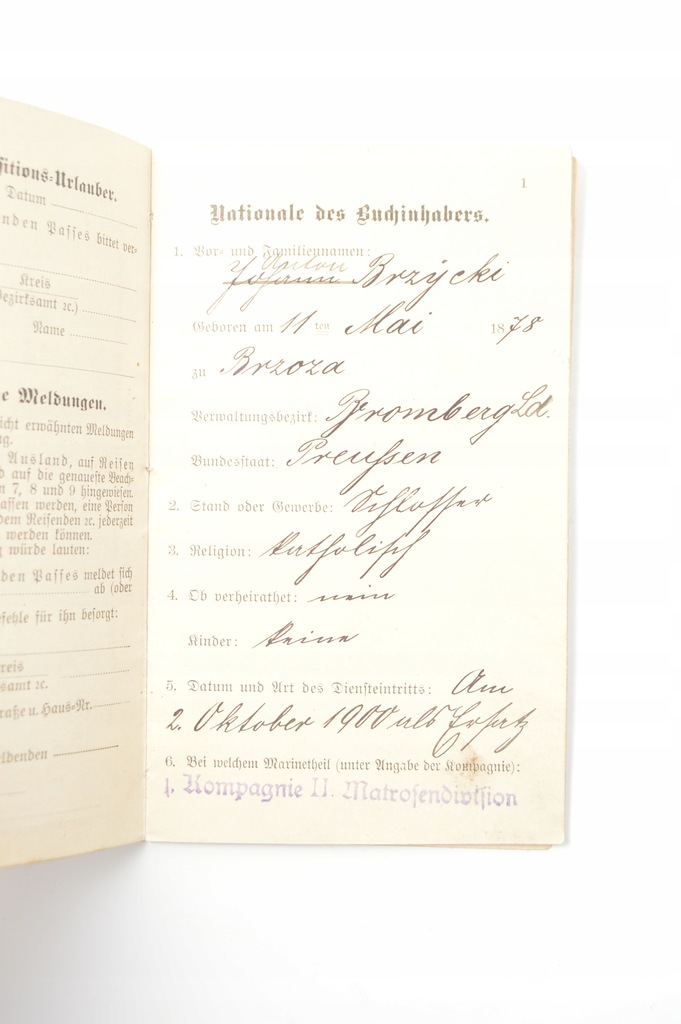 sitions-Urlauber.
Datum
nden Passes bittet ver-
Kreis
Bezirksamt ꝛc.)
Name
e Meldungen.
icht erwähnten Meldungen
ng.
Ausland, auf Reisen
d auf die genaueste Beach-
n 7, 8 und 9 hingewiesen.
lassen werden, eine Person
dem Reisenden ꝛc. jederzeit
werden können.
g würde lauten:
den Passes meldet sich
ab (oder
efehle für ihn besorgt:
reis
samt ꝛc.
raße u. Haus-Nr.
ldenden
1
Nationale des Buchinhabers.
1. Vor- und Familiennamen:
Anton
Johann Brzycki
Geboren am 11 ten Mai 1878
zu Brzoza
Verwaltungsbezirk: Bromberg Ld.
Bundesstaat: Preußen
2. Stand oder Gewerbe: Schlosser
3. Religion: katholisch
4. Ob verheirathet: nein
Kinder: keine
5. Datum und Art des Diensteintritts: Am
2. Oktober 1900 als Ersatz
6. Bei welchem Marinetheil (unter Angabe der Kompagnie):
1. Kompagnie II. Matrosendivision